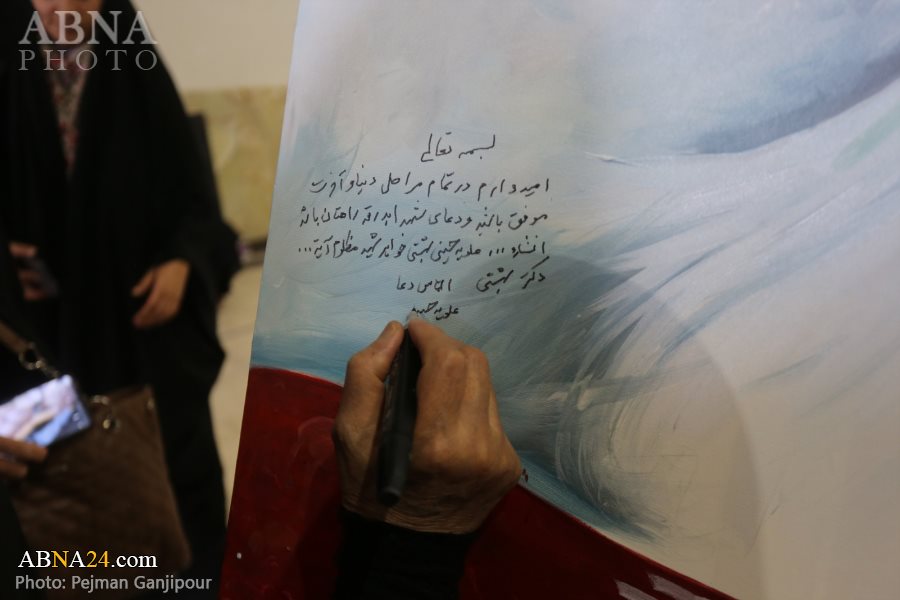 ABNA
PHOTO
بسمه تعالی
امیدوارم در تمام مراحل دنیا و آخرت
موفق باشید و دعای شهدا بدرقه راهتان باشد
انشاء... علویه حسینی بهشتی خواهر شهید مظلوم آیة...
دکتر بهشتی التماس دعا
علویه
ABNA24.com
Photo: Pejman Ganjipour